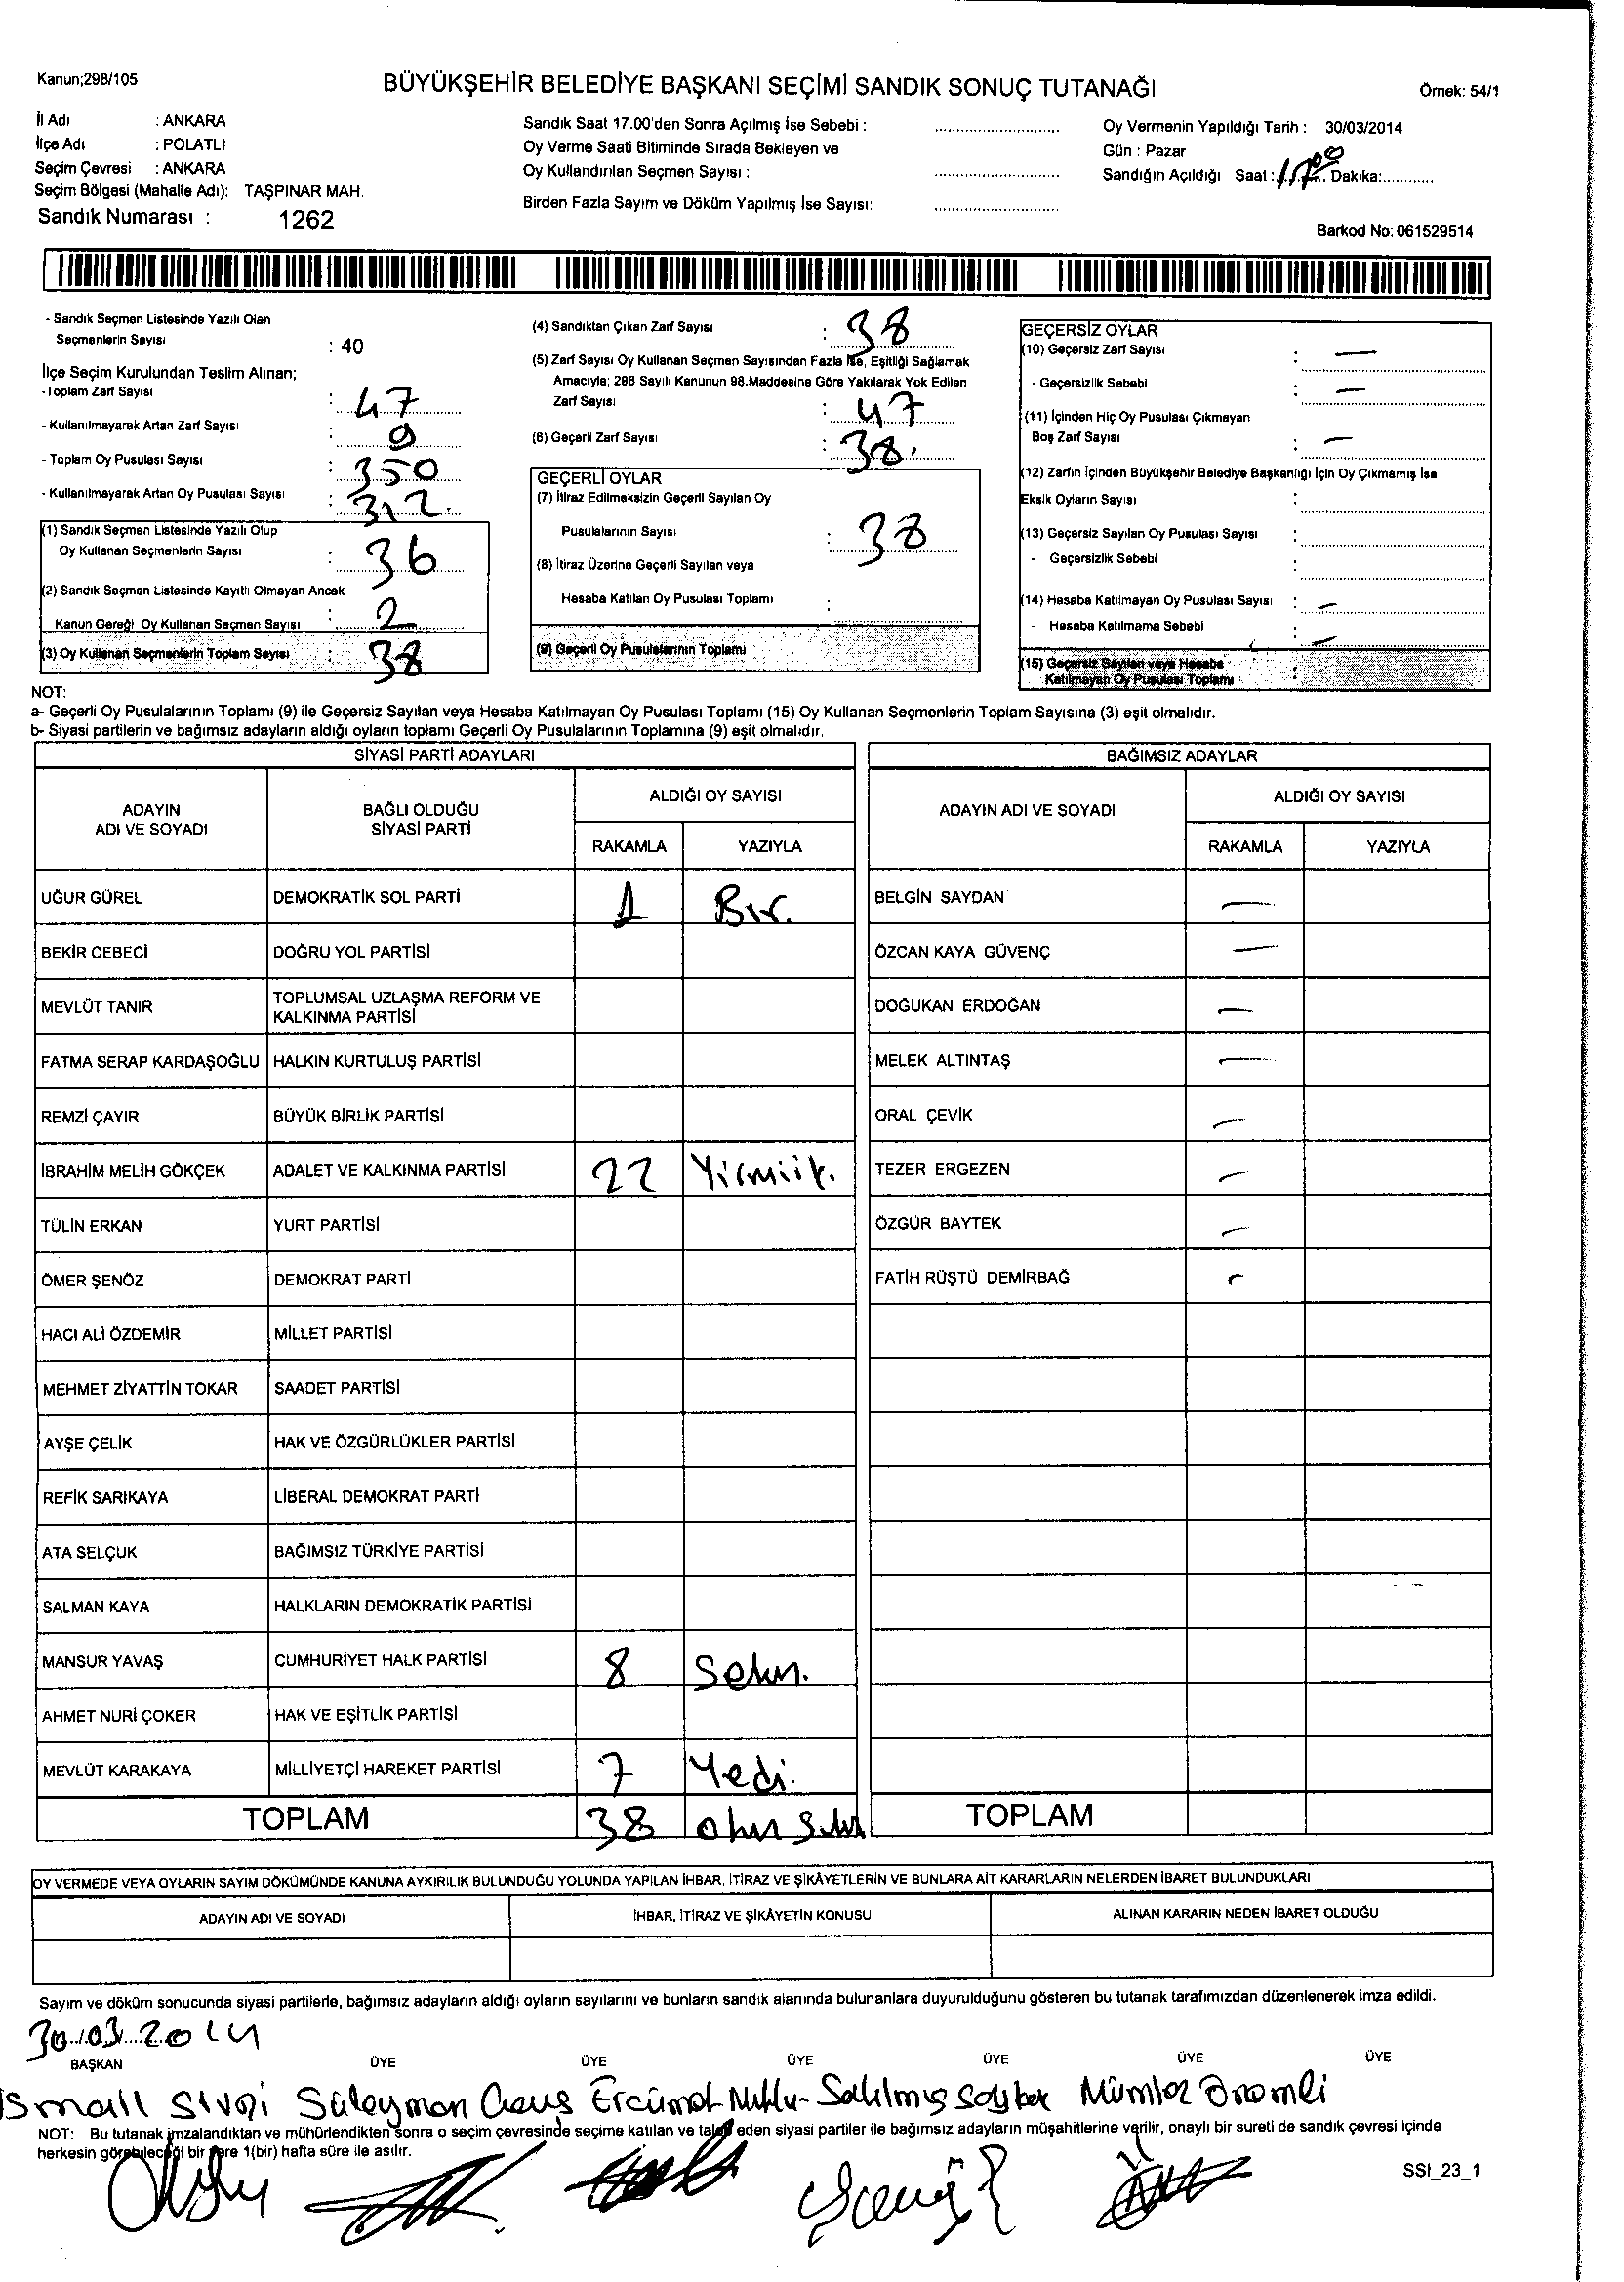 Kanun;298/105
BÜYÜKŞEHİR BELEDİYE BAŞKANI SEÇİMİ SANDIK SONUÇ TUTANAĞI
Örnek: 54/1
İl Adı : ANKARA
İlçe Adı : POLATLI
Seçim Çevresi : ANKARA
Seçim Bölgesi (Mahalle Adı): TAŞPINAR MAH.
Sandık Numarası : 1262
Sandık Saat 17.00'den Sonra Açılmış İse Sebebi :
Oy Verme Saati Bitiminde Sırada Bekleyen ve
Oy Kullandırılan Seçmen Sayısı :
Birden Fazla Sayım ve Döküm Yapılmış İse Sayısı:
Oy Vermenin Yapıldığı Tarih : 30/03/2014
Gün : Pazar
Sandığın Açıldığı Saat : 17 00 Dakika:
Barkod No: 061529514
- Sandık Seçmen Listesinde Yazılı Olan
Seçmenlerin Sayısı : 40
İlçe Seçim Kurulundan Teslim Alınan;
-Toplam Zarf Sayısı : 47
- Kullanılmayarak Artan Zarf Sayısı : 9
- Toplam Oy Pusulası Sayısı : 350
- Kullanılmayarak Artan Oy Pusulası Sayısı : 312.
(1) Sandık Seçmen Listesinde Yazılı Olup
Oy Kullanan Seçmenlerin Sayısı : 36
(2) Sandık Seçmen Listesinde Kayıtlı Olmayan Ancak
Kanun Gereği Oy Kullanan Seçmen Sayısı : 2
(3) Oy Kullanan Seçmenlerin Toplam Sayısı : 38
(4) Sandıktan Çıkan Zarf Sayısı : 38
(5) Zarf Sayısı Oy Kullanan Seçmen Sayısından Fazla İse, Eşitliği Sağlamak
Amacıyla; 298 Sayılı Kanunun 98.Maddesine Göre Yakılarak Yok Edilen
Zarf Sayısı : 47
(6) Geçerli Zarf Sayısı : 38.
GEÇERLİ OYLAR
(7) İtiraz Edilmeksizin Geçerli Sayılan Oy
Pusulalarının Sayısı : 38
(8) İtiraz Üzerine Geçerli Sayılan veya
Hesaba Katılan Oy Pusulası Toplamı :
(9) Geçerli Oy Pusulalarının Toplamı
GEÇERSİZ OYLAR
(10) Geçersiz Zarf Sayısı : —
- Geçersizlik Sebebi : —
(11) İçinden Hiç Oy Pusulası Çıkmayan
Boş Zarf Sayısı : —
(12) Zarfın İçinden Büyükşehir Belediye Başkanlığı İçin Oy Çıkmamış İse
Eksik Oyların Sayısı :
(13) Geçersiz Sayılan Oy Pusulası Sayısı :
- Geçersizlik Sebebi :
(14) Hesaba Katılmayan Oy Pusulası Sayısı : —
- Hesaba Katılmama Sebebi : —
(15) Geçersiz Sayılan veya Hesaba
Katılmayan Oy Pusulası Toplamı :
NOT:
a- Geçerli Oy Pusulalarının Toplamı (9) ile Geçersiz Sayılan veya Hesaba Katılmayan Oy Pusulası Toplamı (15) Oy Kullanan Seçmenlerin Toplam Sayısına (3) eşit olmalıdır.
b- Siyasi partilerin ve bağımsız adayların aldığı oyların toplamı Geçerli Oy Pusulalarının Toplamına (9) eşit olmalıdır.
SİYASİ PARTİ ADAYLARI
ADAYIN ADI VE SOYADI | BAĞLI OLDUĞU SİYASİ PARTİ | ALDIĞI OY SAYISI
RAKAMLA | YAZIYLA
UĞUR GÜREL | DEMOKRATİK SOL PARTİ | 1 | Bir.
BEKİR CEBECİ | DOĞRU YOL PARTİSİ
MEVLÜT TANIR | TOPLUMSAL UZLAŞMA REFORM VE KALKINMA PARTİSİ
FATMA SERAP KARDAŞOĞLU | HALKIN KURTULUŞ PARTİSİ
REMZİ ÇAYIR | BÜYÜK BİRLİK PARTİSİ
İBRAHİM MELİH GÖKÇEK | ADALET VE KALKINMA PARTİSİ | 22 | Yirmiik.
TÜLİN ERKAN | YURT PARTİSİ
ÖMER ŞENÖZ | DEMOKRAT PARTİ
HACI ALİ ÖZDEMİR | MİLLET PARTİSİ
MEHMET ZİYATTİN TOKAR | SAADET PARTİSİ
AYŞE ÇELİK | HAK VE ÖZGÜRLÜKLER PARTİSİ
REFİK SARIKAYA | LİBERAL DEMOKRAT PARTİ
ATA SELÇUK | BAĞIMSIZ TÜRKİYE PARTİSİ
SALMAN KAYA | HALKLARIN DEMOKRATİK PARTİSİ
MANSUR YAVAŞ | CUMHURİYET HALK PARTİSİ | 8 | Sekız.
AHMET NURİ ÇOKER | HAK VE EŞİTLİK PARTİSİ
MEVLÜT KARAKAYA | MİLLİYETÇİ HAREKET PARTİSİ | 7 | Yedi.
TOPLAM | 38
BAĞIMSIZ ADAYLAR
ADAYIN ADI VE SOYADI | ALDIĞI OY SAYISI
RAKAMLA | YAZIYLA
BELGİN SAYDAN | —
ÖZCAN KAYA GÜVENÇ | —
DOĞUKAN ERDOĞAN | —
MELEK ALTINTAŞ | —
ORAL ÇEVİK | —
TEZER ERGEZEN | —
ÖZGÜR BAYTEK | —
FATİH RÜŞTÜ DEMİRBAĞ | —
TOPLAM
OY VERMEDE VEYA OYLARIN SAYIM DÖKÜMÜNDE KANUNA AYKIRILIK BULUNDUĞU YOLUNDA YAPILAN İHBAR, İTİRAZ VE ŞİKÂYETLERİN VE BUNLARA AİT KARARLARIN NELERDEN İBARET BULUNDUKLARI
ADAYIN ADI VE SOYADI | İHBAR, İTİRAZ VE ŞİKÂYETİN KONUSU | ALINAN KARARIN NEDEN İBARET OLDUĞU
Sayım ve döküm sonucunda siyasi partilerle, bağımsız adayların aldığı oyların sayılarını ve bunların sandık alanında bulunanlara duyurulduğunu gösteren bu tutanak tarafımızdan düzenlenerek imza edildi.
30/03/2014
BAŞKAN ÜYE ÜYE ÜYE ÜYE ÜYE ÜYE
Süleyman Mümtaz Önemli
NOT: Bu tutanak imzalandıktan ve mühürlendikten sonra o seçim çevresinde seçime katılan ve talep eden siyasi partiler ile bağımsız adayların müşahitlerine verilir, onaylı bir sureti de sandık çevresi içinde
herkesin görebileceği bir yere 1(bir) hafta süre ile asılır.
SSI_23_1